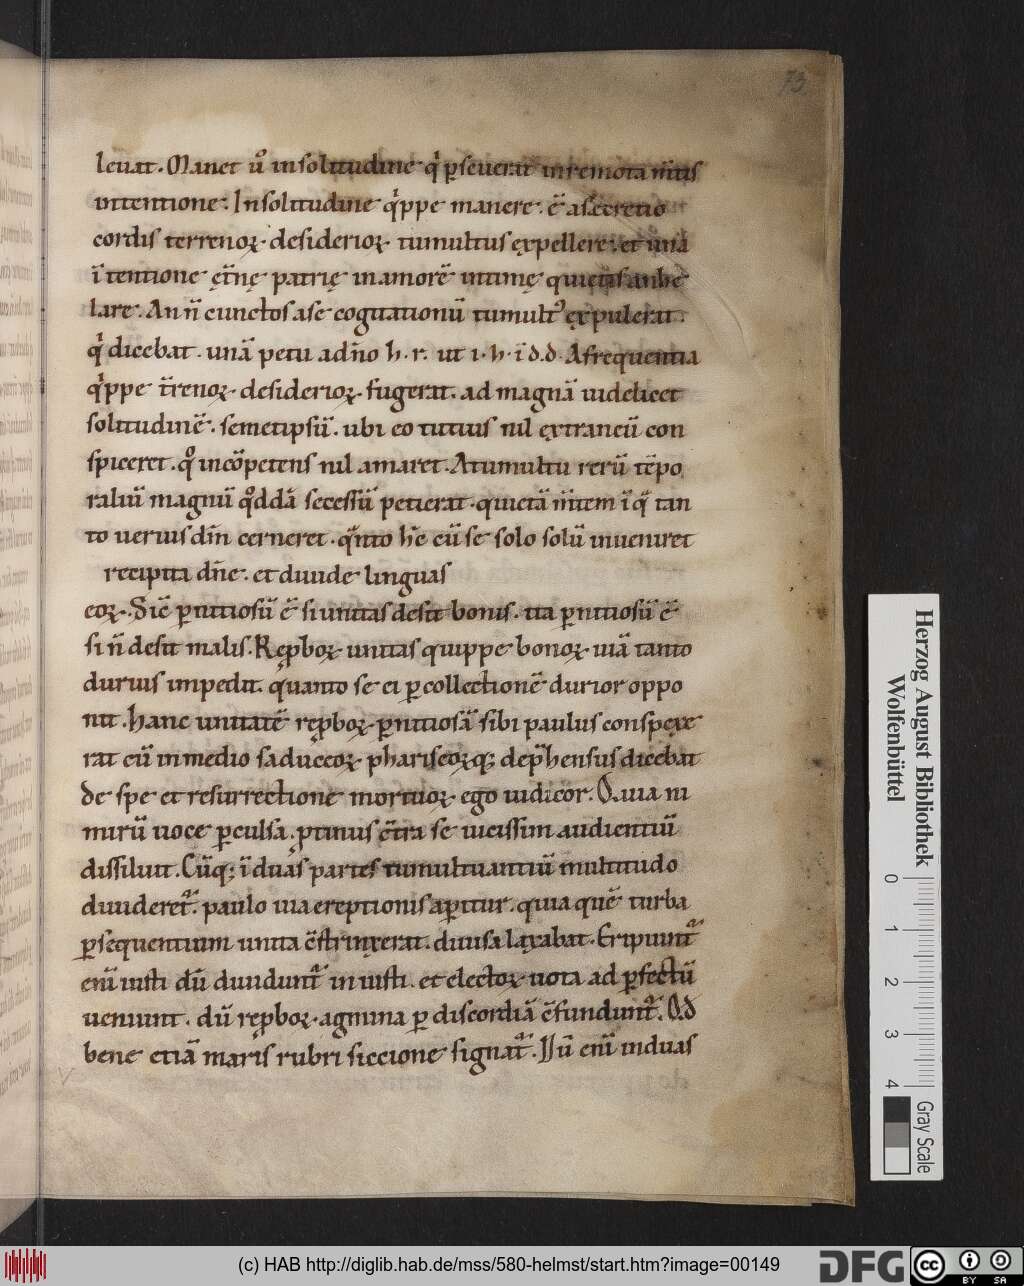 73
leuat. Manet ů in solitudine q̇ p̱seuerat in remota m̅tis
intentione. In solitudine q̇ppe manere. ē a secretio
cordis terrenoꝝ. desiderioꝝ. tumultus ęxpellere. et unā
ītentione ęt̅nę patrię in amorē intimę quietis anhe
lare. An n̄ cunctos a se cogitationū tumultꝰ ęxpulerat.
q̇ dicebat. unā petii a dn̄o h. r. ut i. h. ī d. d. A frequentia
q̇ppe t̅renoꝝ. desiderioꝝ. fugerat. ad magnā uidelicet
solitudinē. semetipsū. ubi eo tutius nil ęxtraneū con
spiceret. qͦ incōpetens nil amaret. A tumultu rerū tēpo
raliū magnū qͦddā secessū petierat. quietā m̅tem ī q̄ tan
to uerius dn̄m cerneret. qͣnto h̅c cū se solo solū inueniret
recipita dn̄e. et diuide linguas
eoꝝ. Sic̄ p̱nitiosū ē si unitas desit bonis. ita p̱nitiosū ē
si n̄ desit malis. Rępboꝝ unitas quippe bonoꝝ uiā tanto
durius impedit. qͣanto se ei p̱ collectionē durior oppo
nit. Hanc unitatē rępboꝝ. p̱nitiosā sibi paulus conspęxe
rat cū in medio saduceoꝝ. phariseoꝝq; dep̄hensus dicebat
de spe et resurrectione mortuoꝝ ego iudicor. Qua ni
mirū uoce p̱culsa. ꝓtinus c̅tra se uicissim audientiū
dissiluit. Cūq; ī duas partes tumultuantiū multitudo
diuideret᷑. paulo uia ereptionis ap̱itur. quia quē turba
p̱sequentium unita c̅strinxerat. diuisa laxabat. Eripiunt᷑
enī iusti dū diuidunt᷑ iniusti. et electoꝝ uota ad p̱fectū
ueniunt. dū rępboꝝ. agmina p̱ discordiā c̅fundunt᷑. Qd
bene etiā maris rubri siccione signat᷑. Nā enī in duas
Herzog August Bibliothek
Wolfenbüttel
0 1 2 3 4
Gray Scale
(c) HAB http://diglib.hab.de/mss/580-helmst/start.htm?image=00149
DFG
cc
BY SA